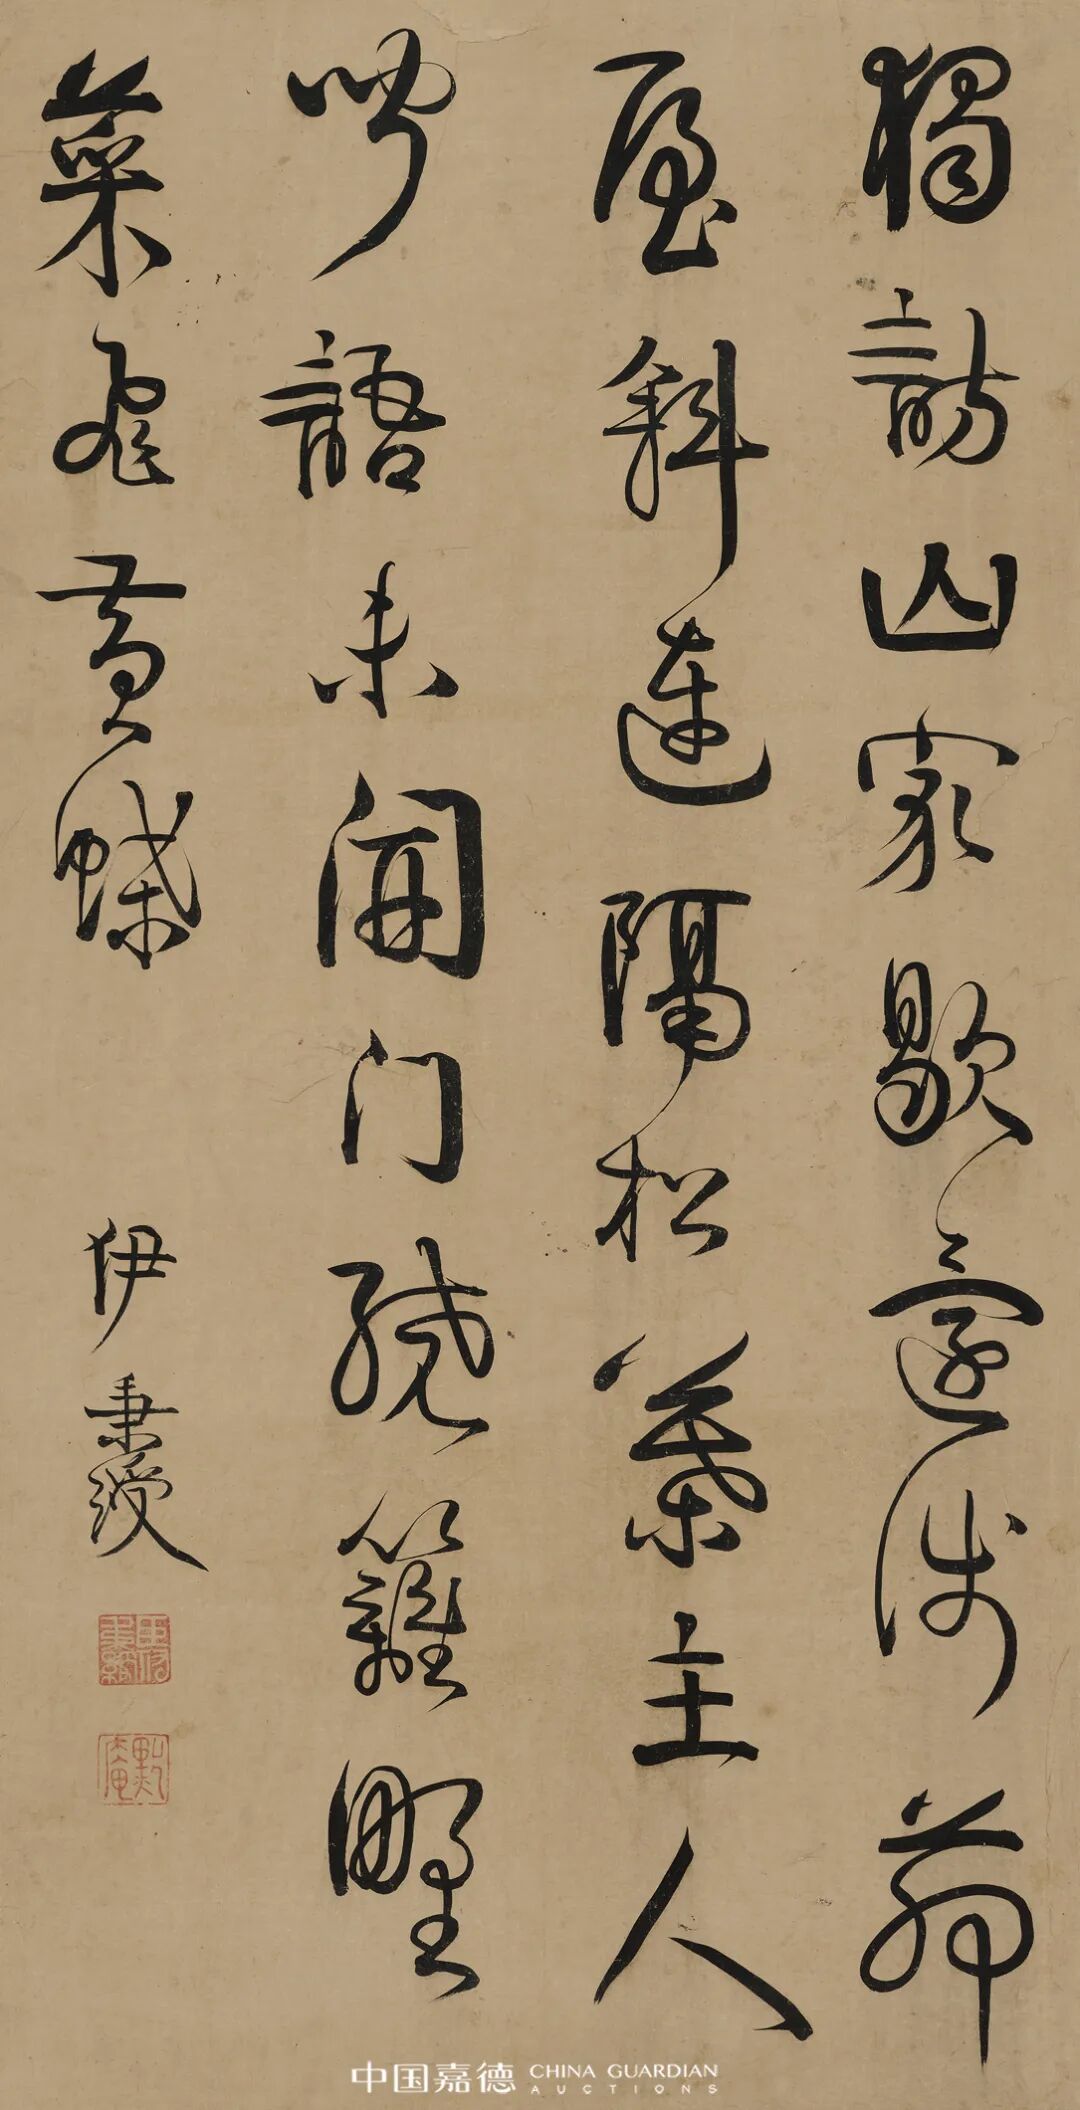 獨訪山家歇還涉茆
屋斜連隔松葉主人
聞語未開門繞籬野
菜飛黃蝶
伊秉綬
中国嘉德 CHINA GUARDIAN AUCTIONS